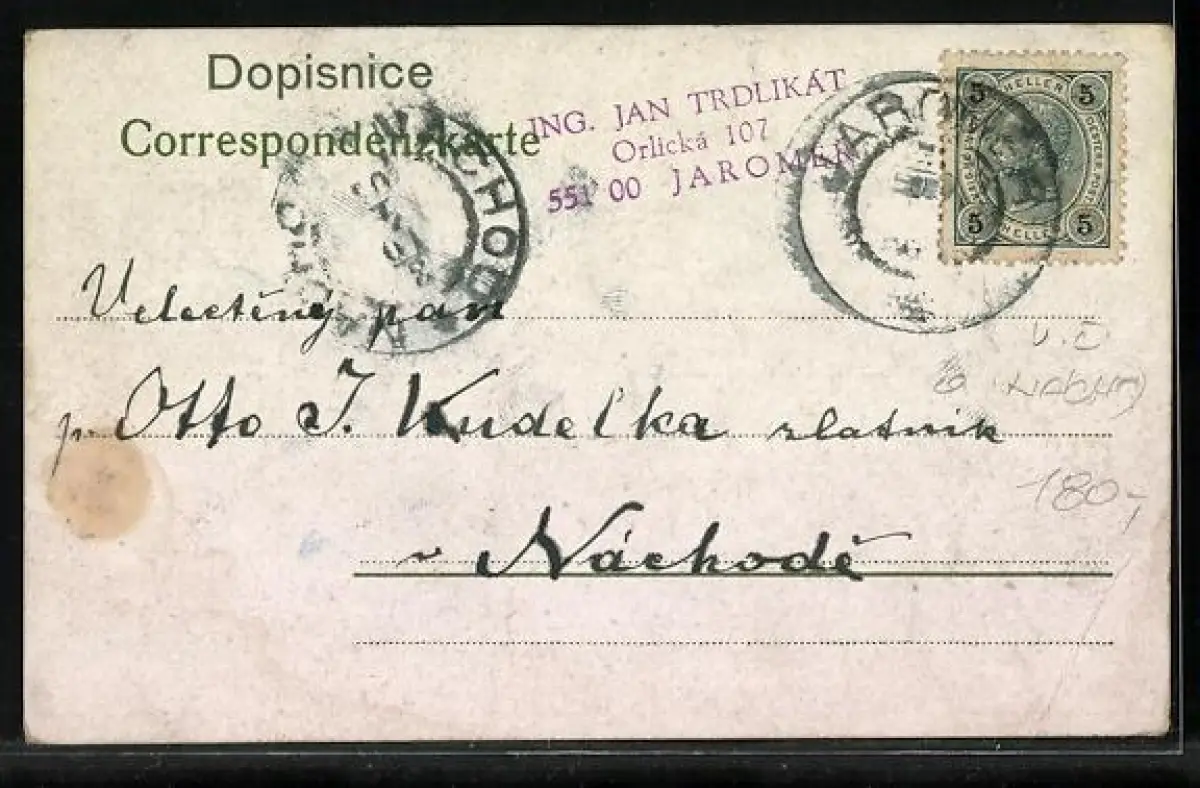 Dopisnice
Correspondenzkarte
ING. JAN TRDLIKÁT
Orlická 107
551 00 JAROMĚŘ
NÁCHOD
JAROM
5 HELLER 5
5 HELLER 5
Velectěný pan
p. Otto J. Kudelka zlatník
v Náchodě
180,-